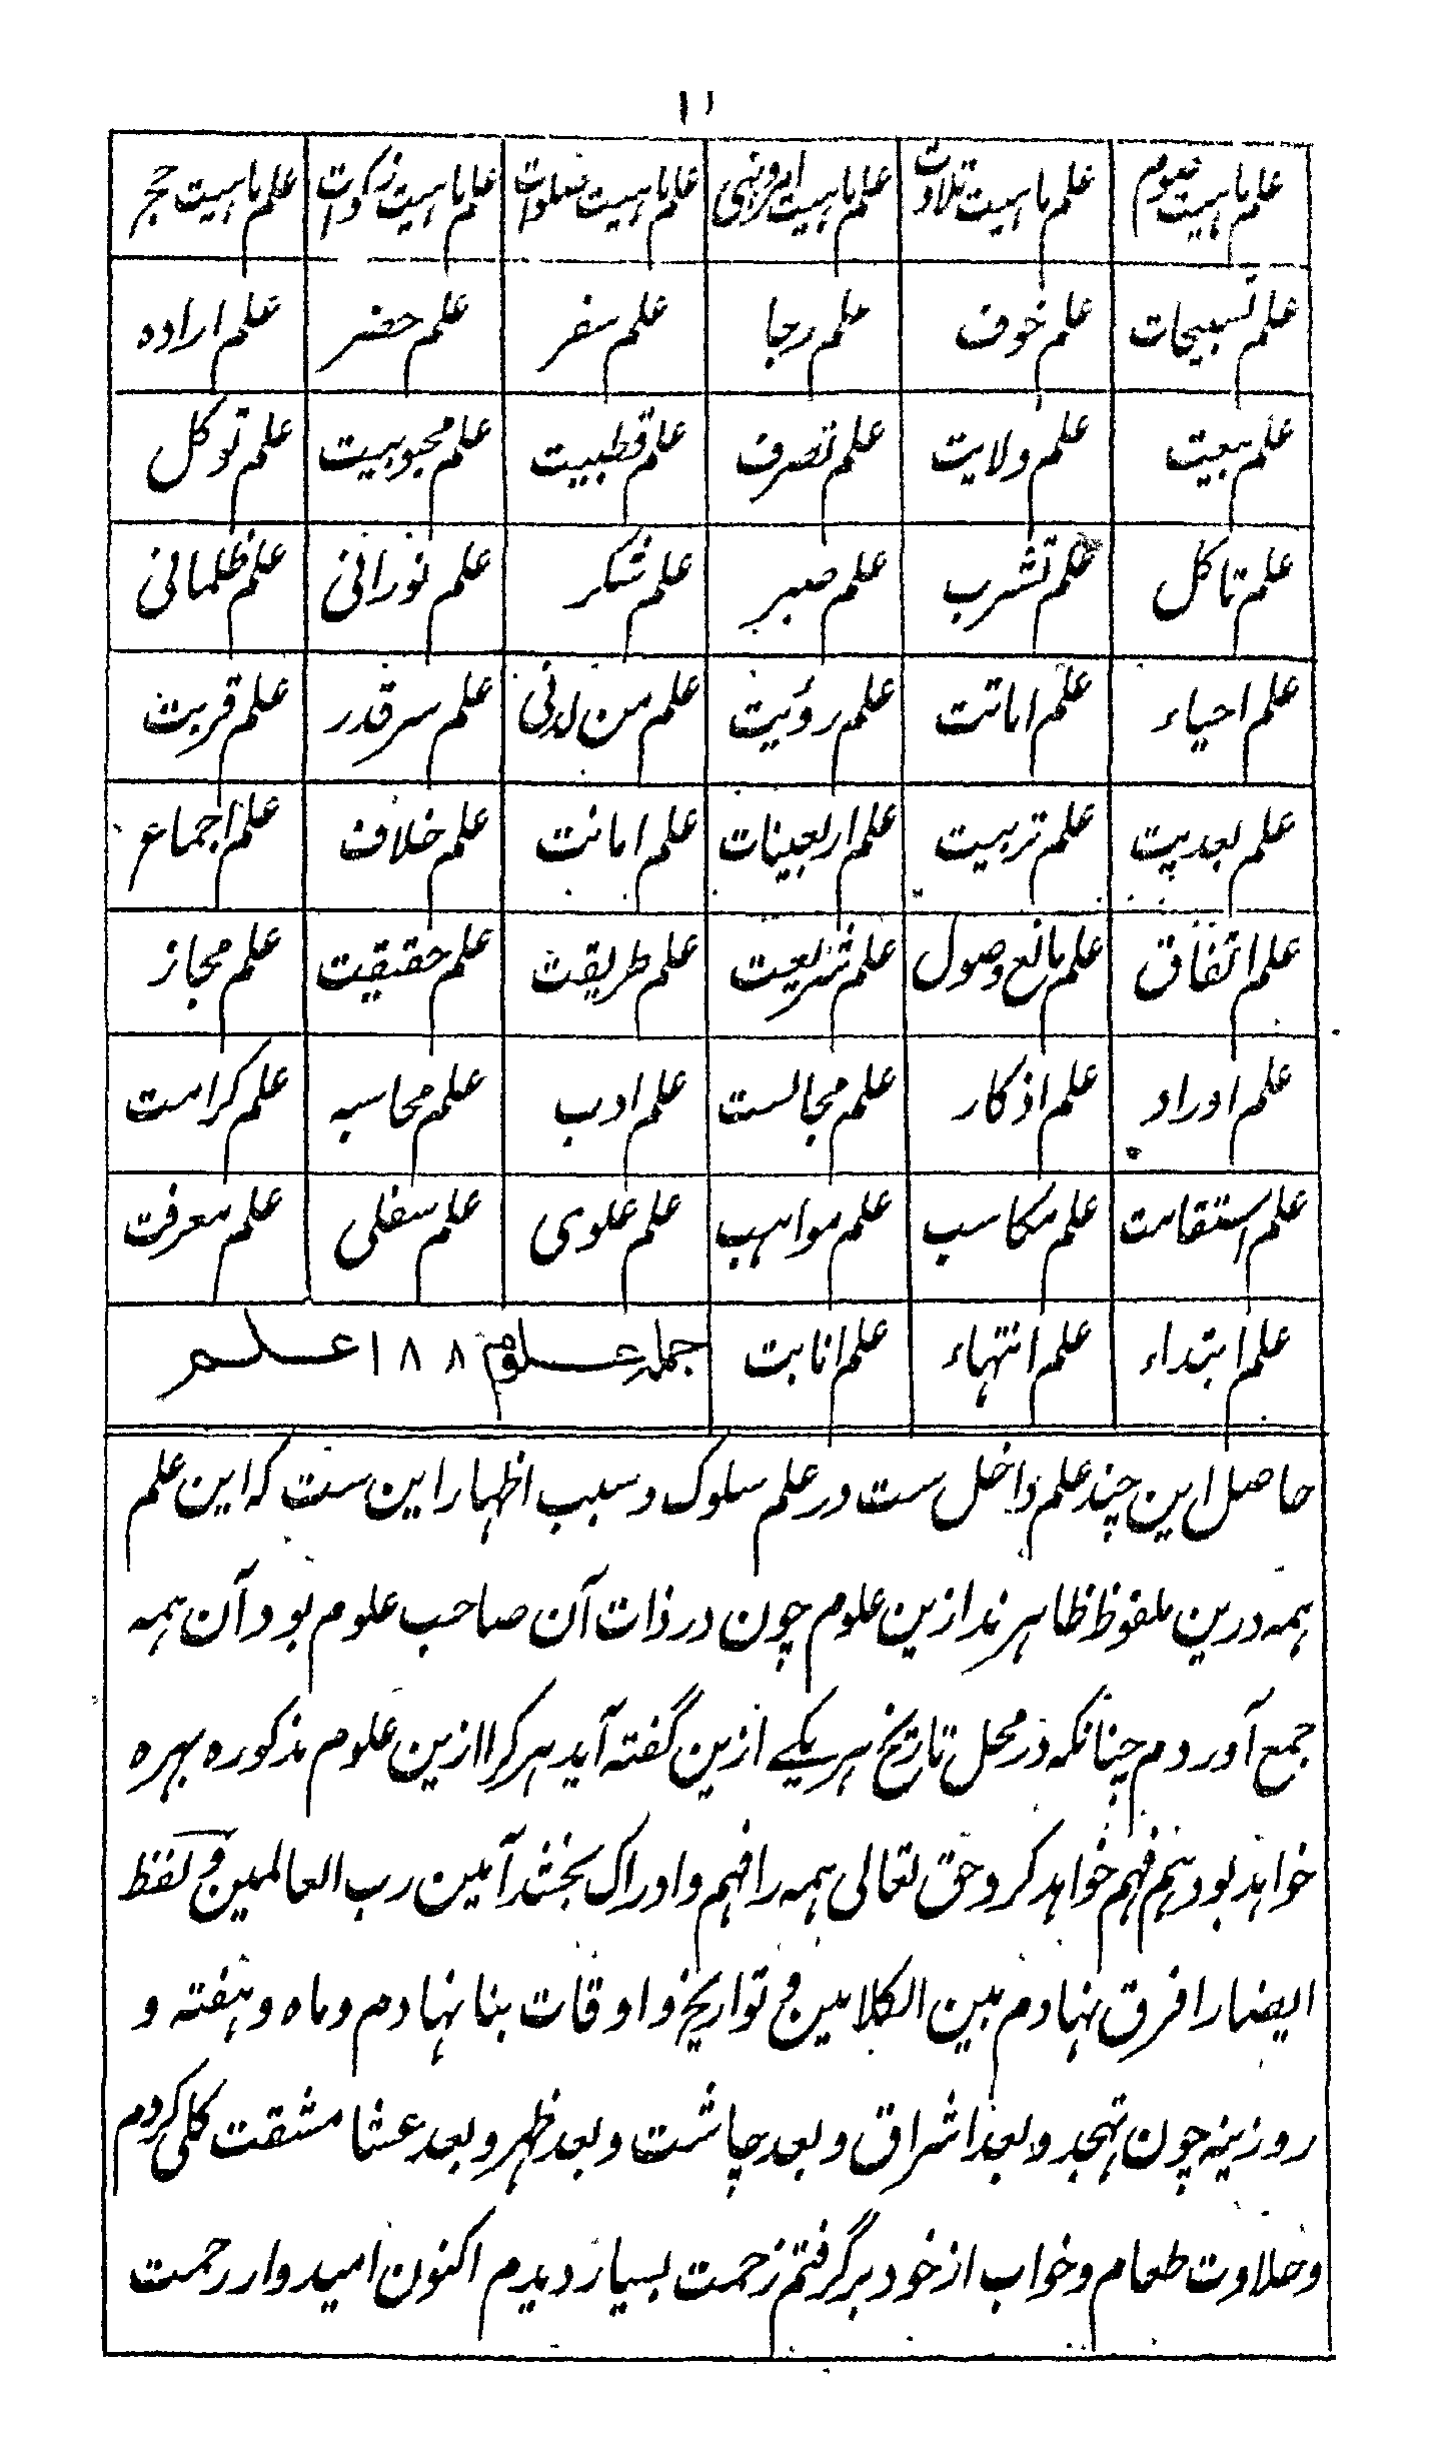 ۱۱
علم ماهیت صوم علم ماهیت تلاوت علم ماهیت امر و نهی علم ماهیت صلوات علم ماهیت زکوات علم ماهیت حج
علم تسبیحات علم خوف علم رجا علم سفر علم حضر علم اراده
علم بیعت علم ولایت علم تصرف علم قطبیت علم محبوبیت علم توکل
علم تاکل علم تشرب علم صبر علم شکر علم نورانی علم ظلمانی
علم احیاء علم اماتت علم رویٔت علم من لدنی علم سر قدر علم قربت
علم بعدیت علم تربیت علم اربعینات علم امانت علم خلاف علم اجماع
علم اتفاق علم مانع وصول علم شریعت علم طریقت علم حقیقت علم مجاز
علم اوراد علم اذکار علم مجالست علم ادب علم محاسبه علم کرامت
علم استقامت علم مکاسب علم مواهب علم علوی علم سفلی علم معرفت
علم ابتداء علم انتهاء علم انابت جمله علوم ۱۸۸ علم
حاصل این چند علم داخل ست در علم سلوک و سبب اظهار این ست که این علم
همه درین ملفوظ ظاهرند ازین علوم چون در ذات آن صاحب علوم بود آن همه
جمع آوردم چنانکه در محل تاریخ هر یکے ازین گفته آید هر کرا ازین علوم مذکوره بهره
خواهد بود هم فهم خواهد کرد حق تعالی همه را فهم و ادراک بخشد آمین رب العالمین و لفظ
ایضا را فرق نهادم بین الکلامین و تواریخ و اوقات بنا نهادم و ماه و هفته و
روزینه چون تهجد و بعد اشراق و بعد چاشت و بعد ظهر و بعد عشا مشقت کلی کردم
و حلاوت طعام و خواب از خود برگرفتم زحمت بسیار دیدم اکنون امیدوار رحمت